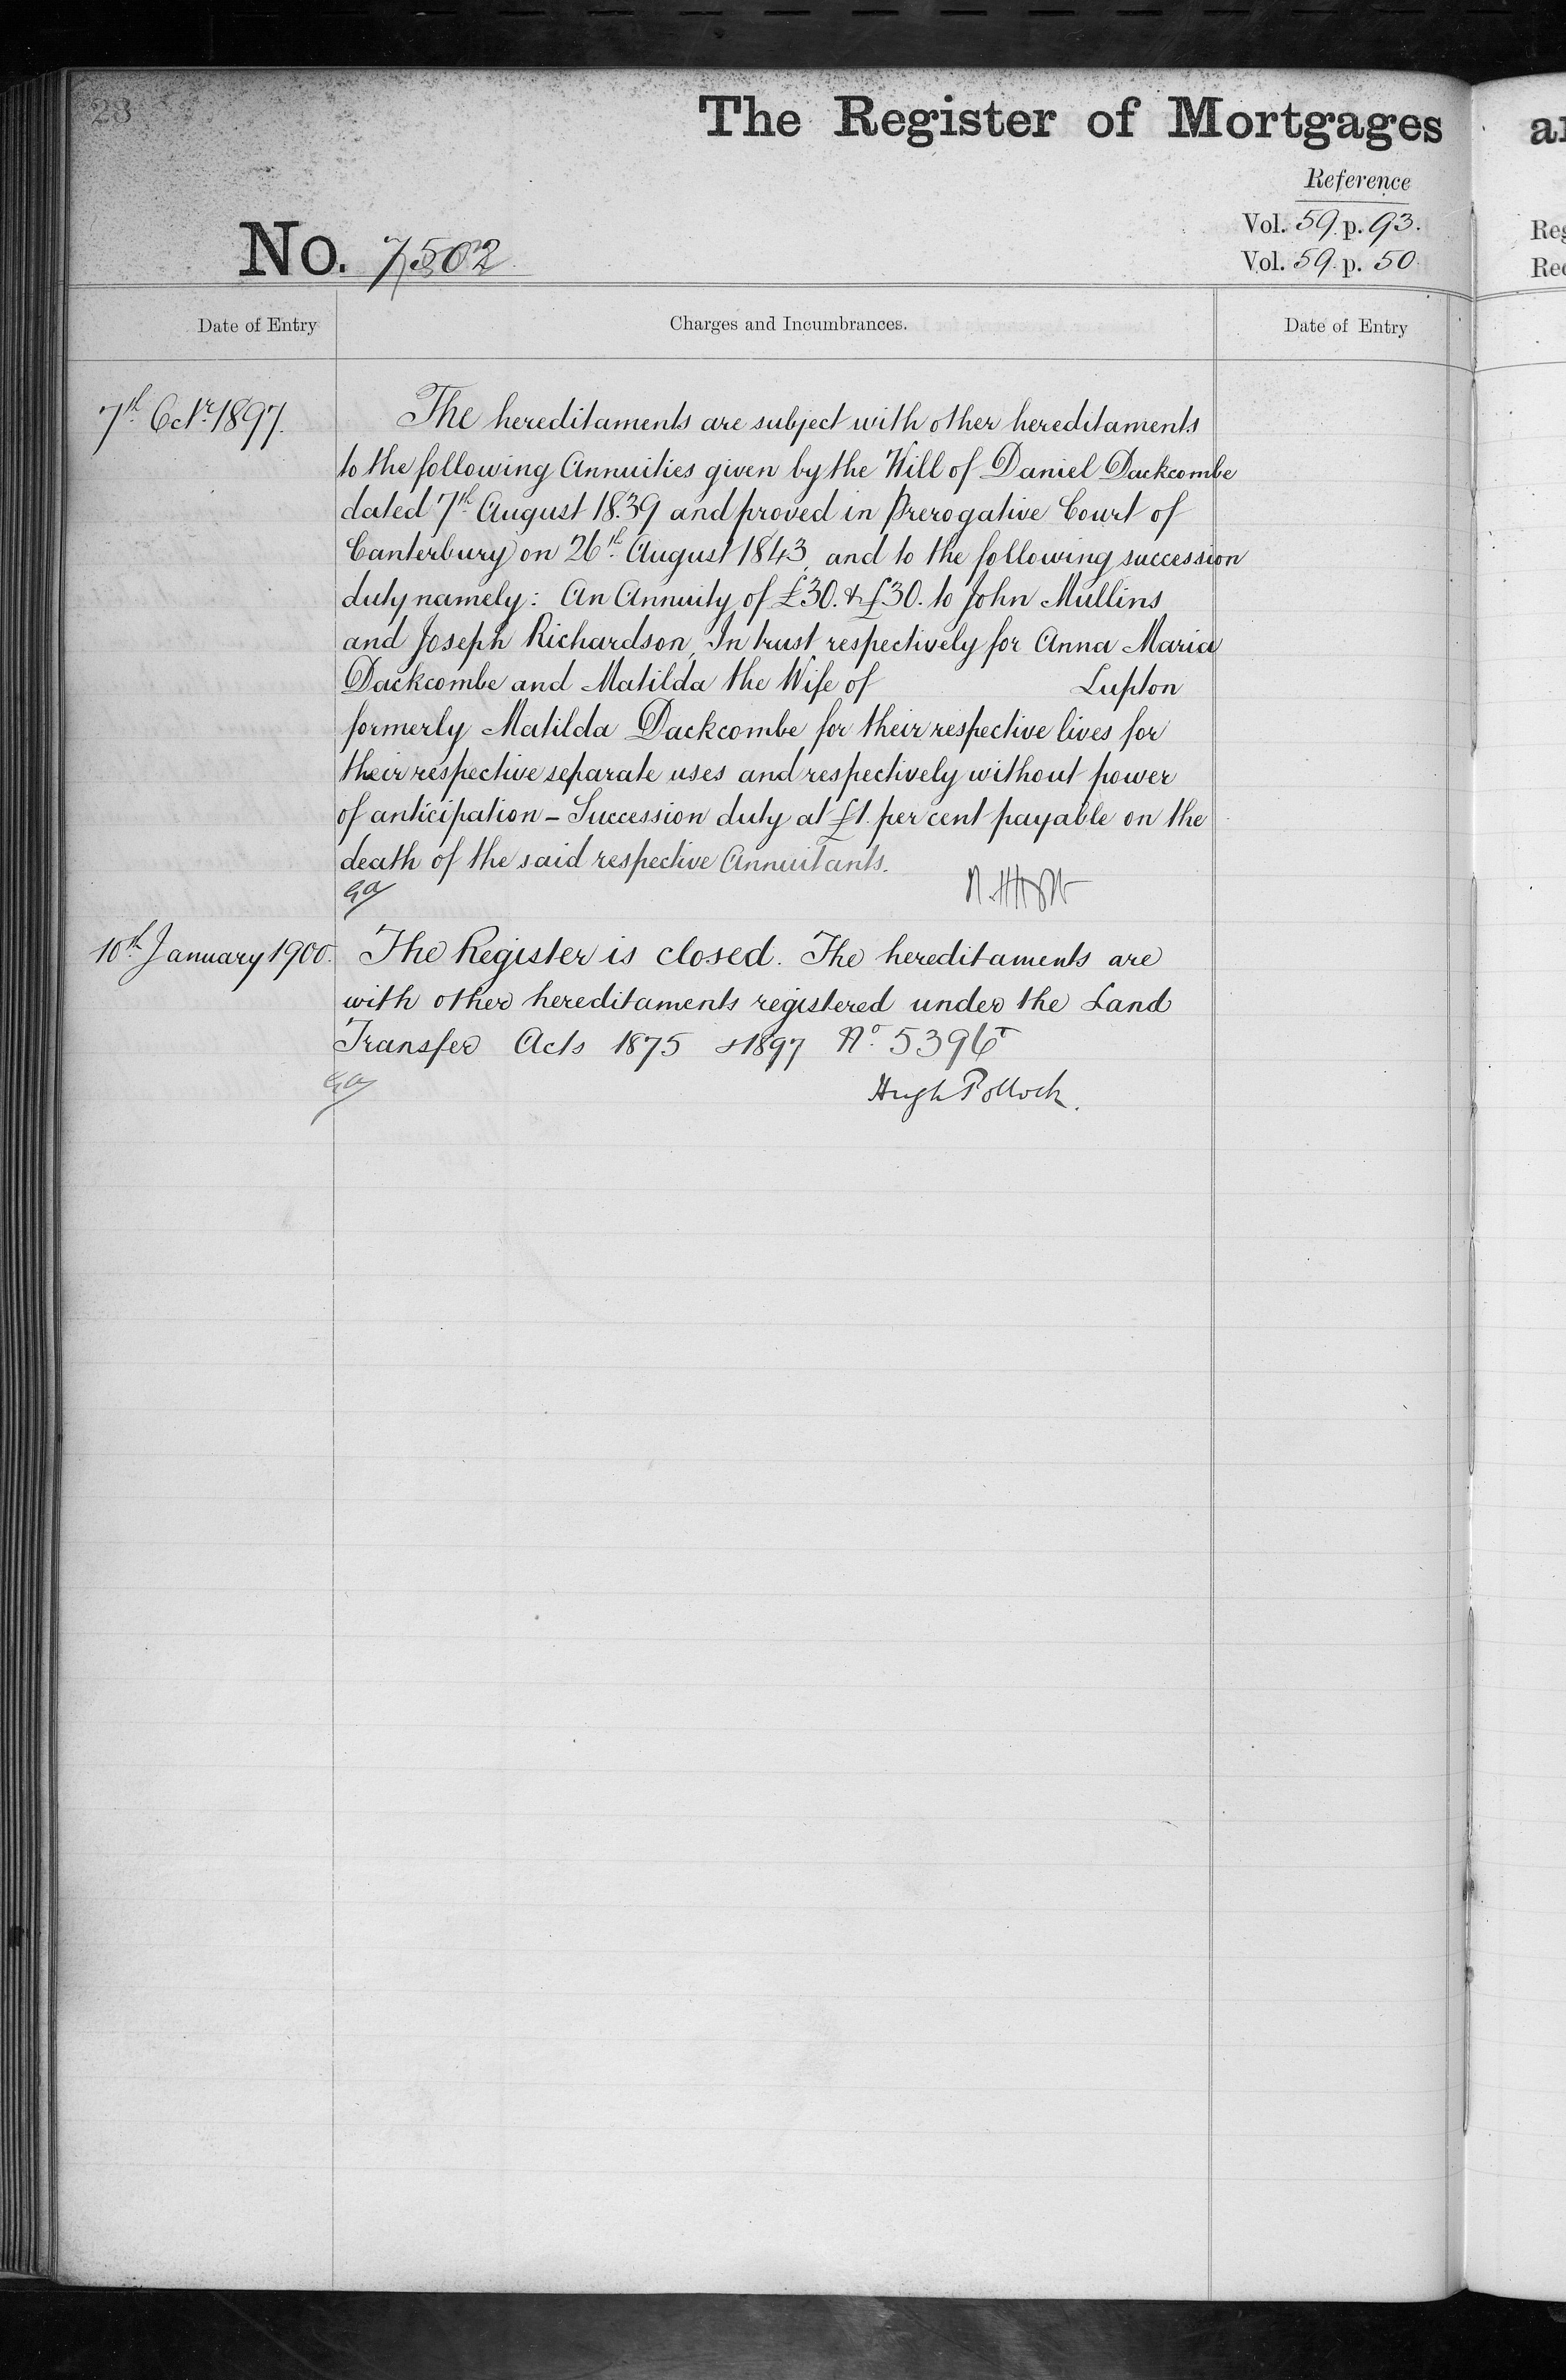 28
The Register of Mortgages
Reference
Vol. 59. p. 93.
No. 7502
Vol. 59. p. 50
Date of Entry
Charges and Incumbrances.
Date of Entry
7th Octr. 1897.
The hereditaments are subject with other hereditaments
to the following Annuities given by the Will of Daniel Dackcombe
dated 7th August 1839 and proved in Prerogative Court of
Canterbury on 26th August 1843, and to the following succession
duty namely: An Annuity of £30. & £30. to John Mullins
and Joseph Richardson, In trust respectively for Anna Maria
Dackcombe and Matilda the Wife of Lupton
formerly Matilda Dackcombe for their respective lives for
their respective separate uses and respectively without power
of anticipation – Succession duty at £1. per cent payable on the
death of the said respective Annuitants.
10th January 1900.
The Register is closed. The hereditaments are
with other hereditaments registered under the Land
Transfer Acts 1875 & 1897 No. 5396T
Hugh Pollock.